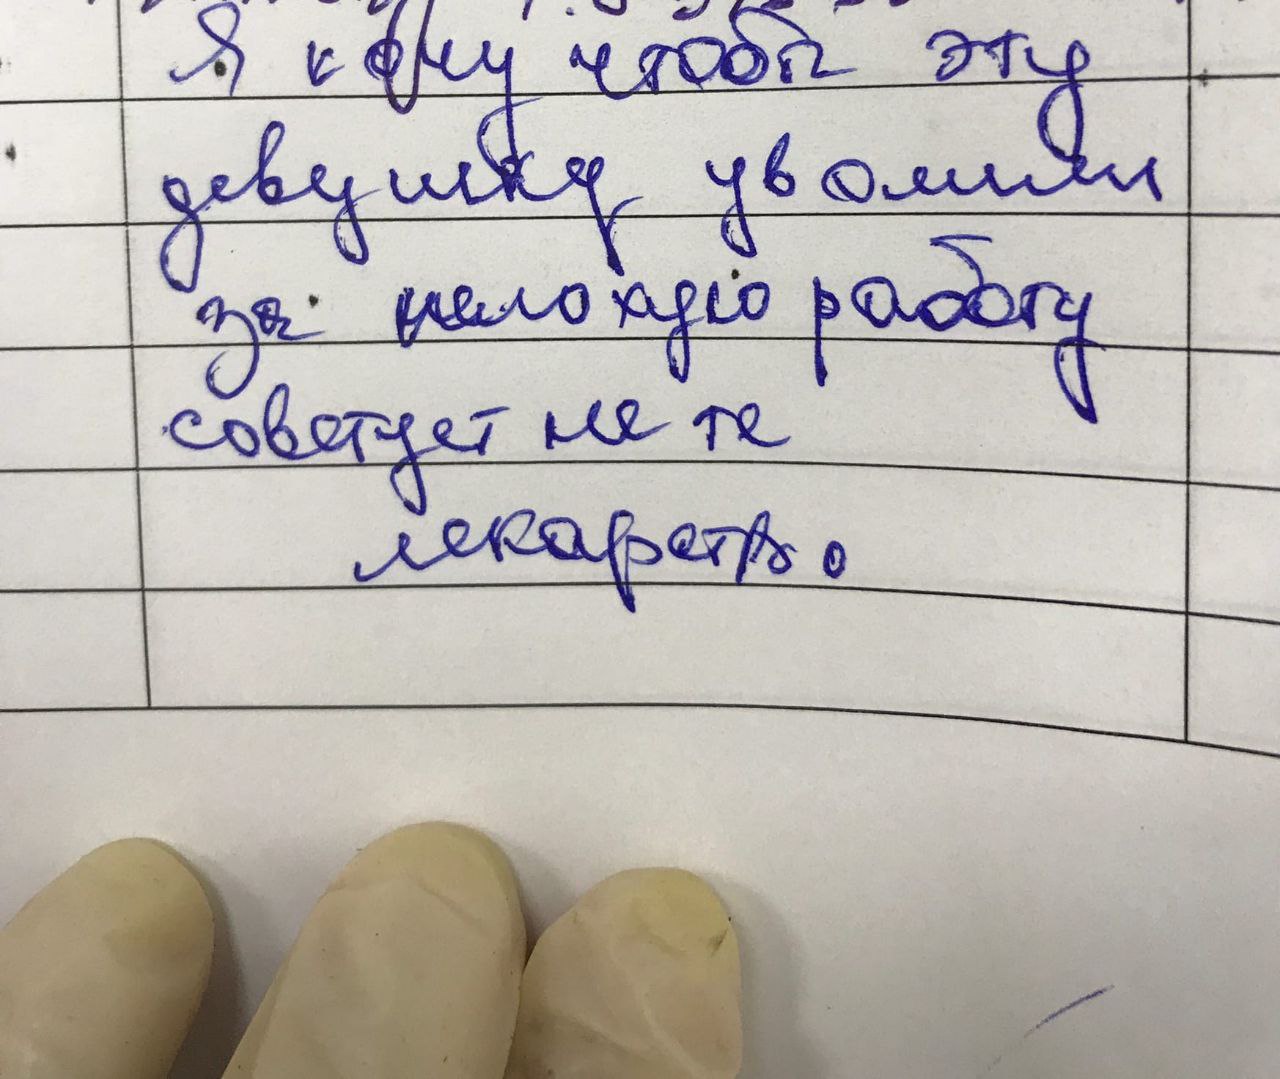 Я хочу чтобы эту
девушку уволили
за плохую работу
советует не те
лекарства.